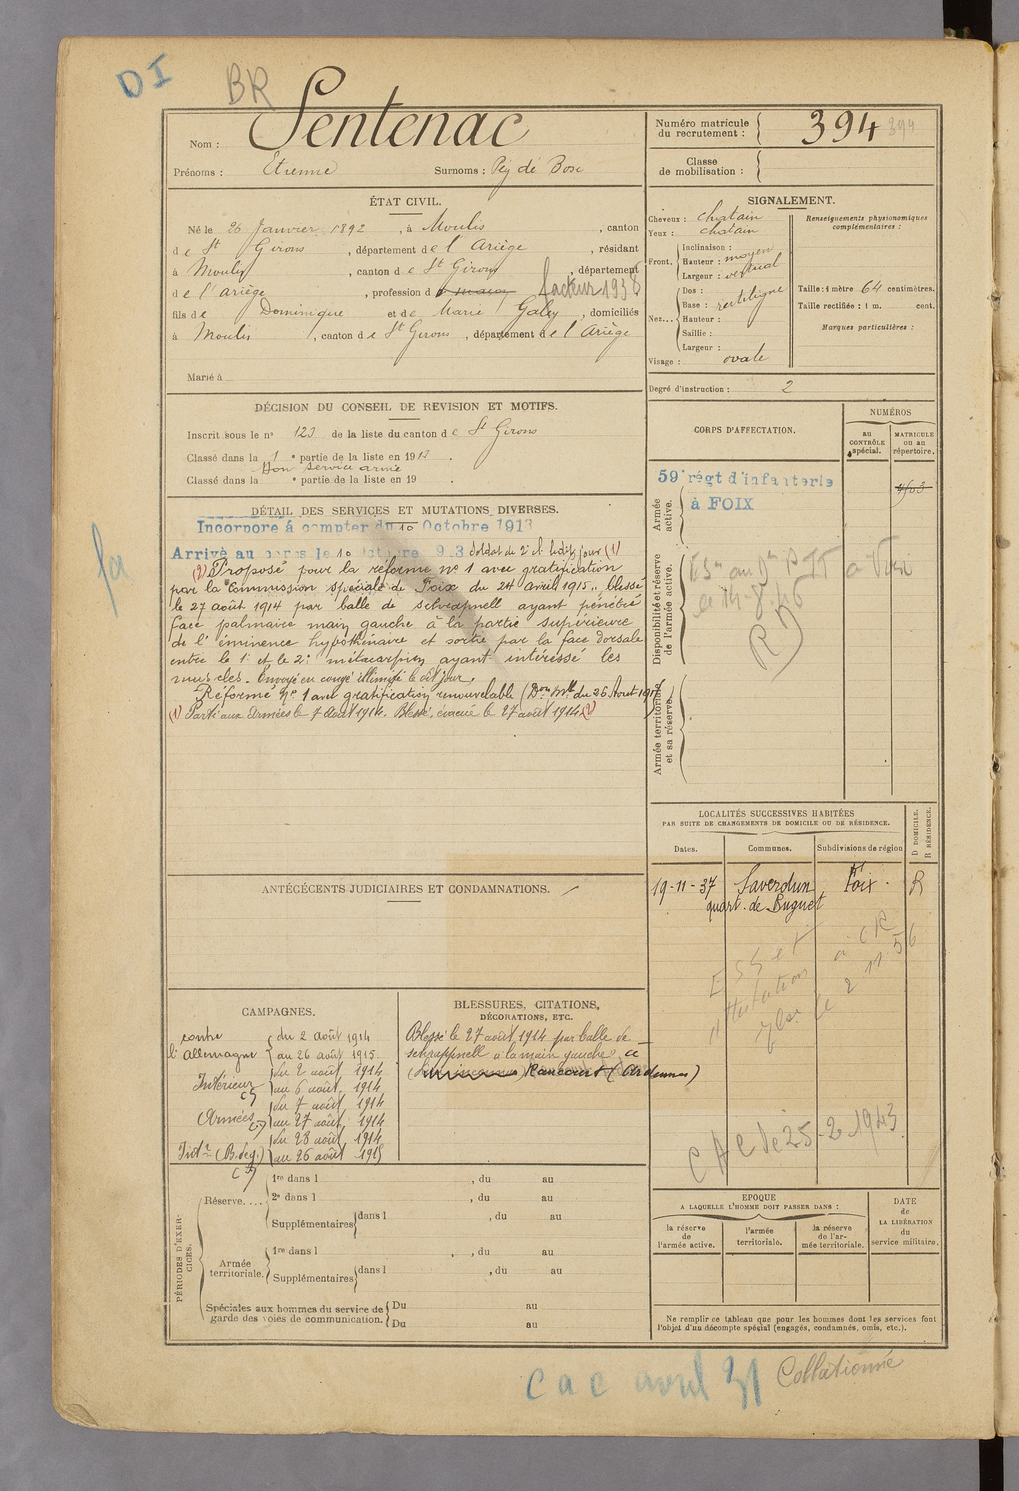 DI
BR
Nom : Sentenac
Prénoms : Etienne Surnoms : Pey de Bosc
Numéro matricule du recrutement : 394 394
Classe de mobilisation :
ÉTAT CIVIL.
Né le 26 Janvier 1892, à Moulis, canton
de St Girons, département de l'Ariège, résidant
à Moulis, canton de St Girons, département
de l'Ariège, profession d facteur 1938
fils de Dominique et de Marie Galey, domiciliés
à Moulis, canton de St Girons, département de l'Ariège
Marié à
SIGNALEMENT.
Cheveux : chatain
Yeux : chatain
Front. Inclinaison :
Hauteur : moyen
Largeur : vertical
Nez... Dos :
Base : rectiligne
Hauteur :
Saillie :
Largeur :
Visage : ovale
Renseignements physionomiques complémentaires :
Taille : 1 mètre 64 centimètres.
Taille rectifiée : 1 m. cent.
Marques particulières :
Degré d'instruction : 2
DÉCISION DU CONSEIL DE REVISION ET MOTIFS.
Inscrit sous le n° 123 de la liste du canton de St Girons
Classé dans la 1e partie de la liste en 1912.
Bon service armé
Classé dans la e partie de la liste en 19 .
CORPS D'AFFECTATION.
NUMÉROS
au CONTRÔLE spécial.
MATRICULE ou au répertoire.
Armée active.
59e régt d'infanterie
à FOIX
4703
Disponibilité et réserve de l'armée active.
le 14-8-46
RD
Armée territoriale et sa réserve.
DÉTAIL DES SERVICES ET MUTATIONS DIVERSES.
Incorporé à compter du 10 Octobre 1913
Arrivé au corps le 10 Octobre 1913 Soldat de 2e cl. ledit jour (1)
(2) Proposé pour la réforme n° 1 avec gratification
par la Commission spéciale de Foix du 24 avril 1915 ,, blessé
le 27 août 1914 par balle de schrapnell ayant pénétré
face palmaire main gauche à la partie supérieure
de l'éminence hypothénaire et sortie par la face dorsale
entre le 1e et le 2e métacarpien ayant intéressé les
muscles. Envoyé en congé illimité le dit jour.
Réformé N° 1 avec gratification renouvelable (Don Mlle du 26 Aout 1915)
(1) Parti aux Armées le 7 Août 1914. Blessé, évacué le 27 août 1914 (2)
LOCALITÉS SUCCESSIVES HABITÉES
PAR SUITE DE CHANGEMENTS DE DOMICILE OU DE RÉSIDENCE.
Dates. Communes. Subdivisions de région D DOMICILE. R RÉSIDENCE.
19-11-37 Saverdun Foix. R
quart. de Luguet
ESS et à CR
le 2 11 56
CAC de 25-2-1943
ANTÉCÉDENTS JUDICIAIRES ET CONDAMNATIONS.
CAMPAGNES.
contre l'allemagne du 2 août 1914
au 26 août 1915.
Intérieur CS du 2 août 1914
au 6 août 1914
Armées CD du 7 août 1914
au 27 août 1914
Intr (B. deg.) CS du 28 août 1914
au 26 août 1915
BLESSURES, CITATIONS, DÉCORATIONS, ETC.
Blessé le 27 août 1914 par balle de
schrappnell à la main gauche, à
Rancourt (Ardennes)
PÉRIODES D'EXERCICES.
Réserve.... 1re dans l , du au
2e dans l , du au
Supplémentaires dans l , du au
Armée territoriale. 1re dans l , du au
Supplémentaires dans l , du au
Spéciales aux hommes du service de garde des voies de communication. Du au
Du au
EPOQUE
A LAQUELLE L'HOMME DOIT PASSER DANS :
la réserve de l'armée active.
l'armée territoriale.
la réserve de l'armée territoriale.
DATE de LA LIBÉRATION du service militaire.
Ne remplir ce tableau que pour les hommes dont les services font
l'objet d'un décompte spécial (engagés, condamnés, omis, etc.).
cac avril 31
Collationné